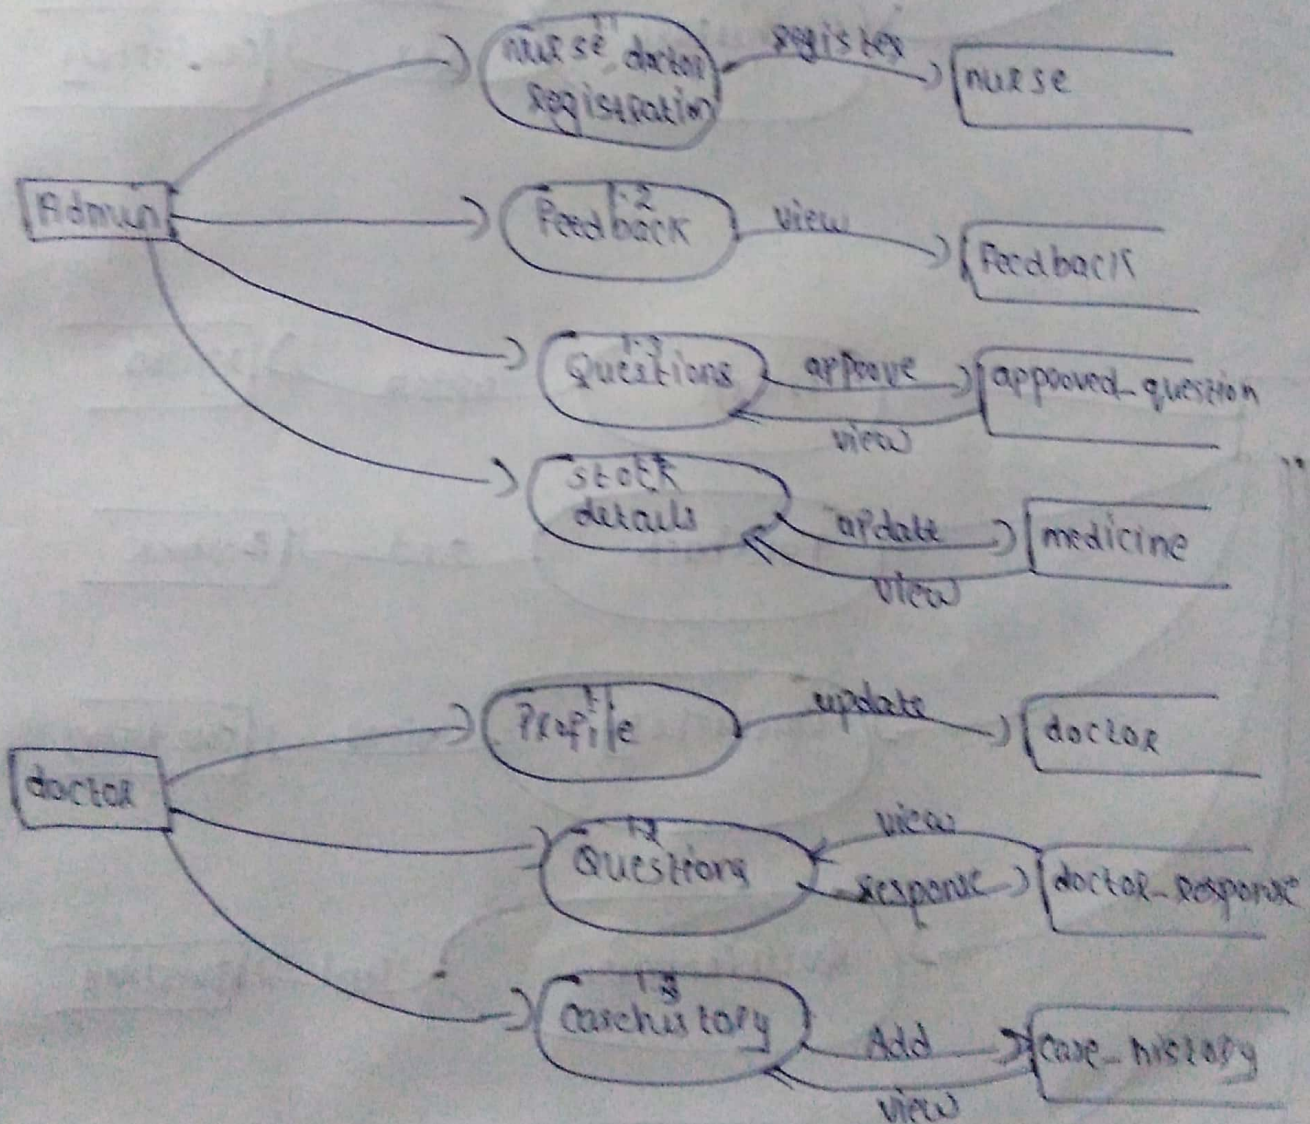 1.1
nurse doctor
registration
register
nurse
Admin
1.2
Feedback
view
Feedback
1.3
Questions
approve
approved_question
view
stock
details
update
medicine
view
1.1
Profile
update
doctor
doctor
1.2
Questions
view
response
doctor_response
1.3
casehistory
Add
case_history
view